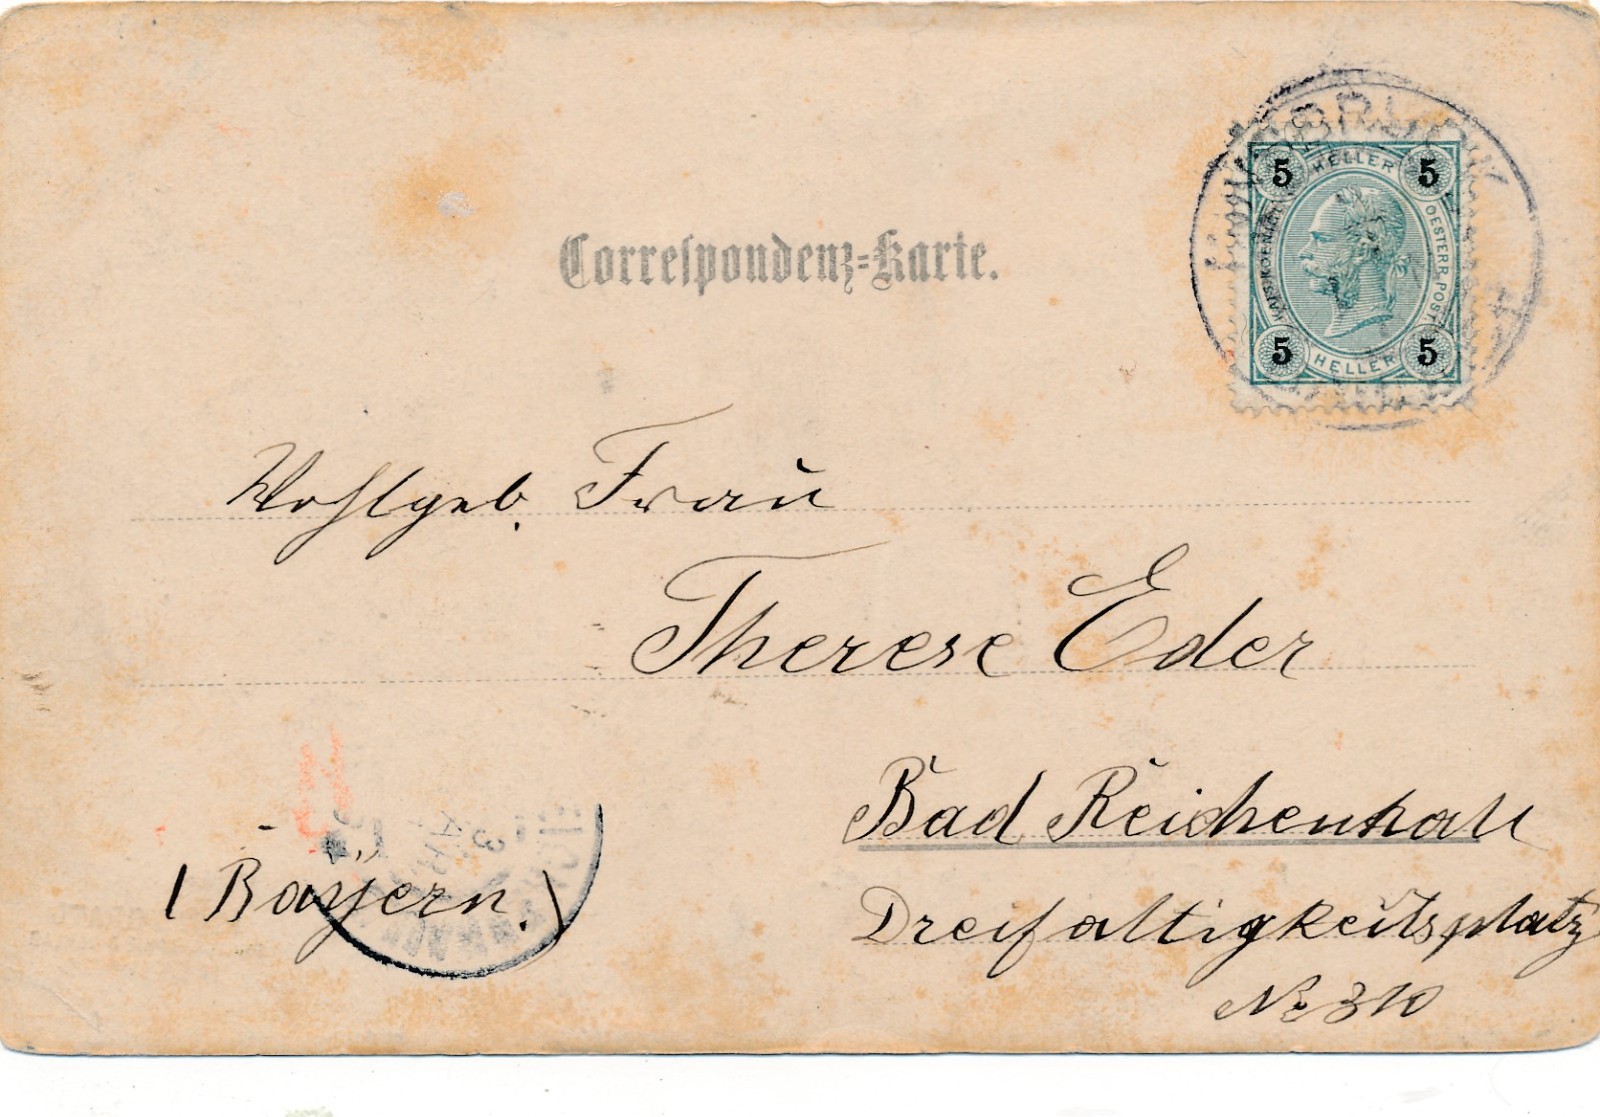 Correspondenz-Karte.
5 HELLER 5
KAIS. KOENIGL. OESTERR. POST.
5 HELLER 5
Wohlgeb. Frau
Therese Eder
Bad Reichenhall
(Bayern.)
Dreifaltigkeitsplatz
No 310